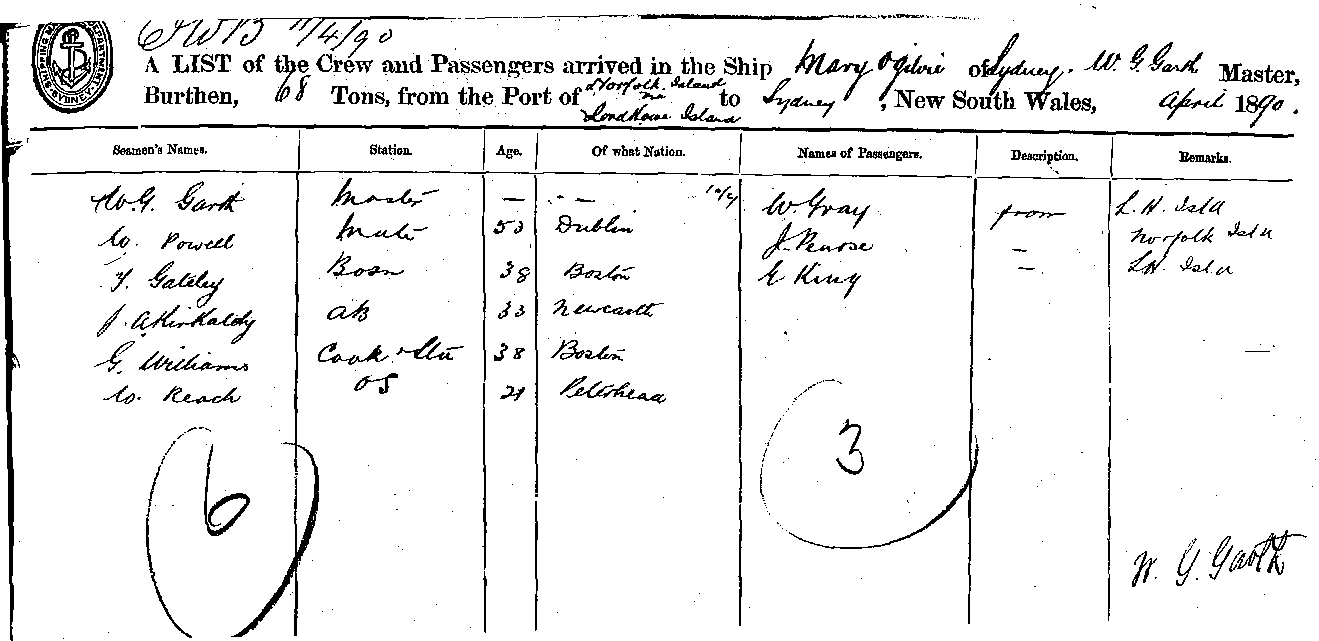 11/4/90
A LIST of the Crew and Passengers arrived in the Ship Mary Ogilvie of Sydney. W. G. Garth Master,
Burthen, 68 Tons, from the Port of Norfolk Island via Lord Howe Island to Sydney, New South Wales, April 1890.
Seamen's Names. Station. Age. Of what Nation. Names of Passengers. Description. Remarks.
W. G. Garth Master — — W. Gray from L. H. Isld
W. Powell Mate 53 Dublin J. Penrose — Norfolk Isld
Gateley Bosn 38 Boston E King — L H. Isld
J. A Kirkaldy AB 33 Newcastle
G. Williams Cook & Std 38 Boston —
W. Reach OS 21 Peterhead
6 3
W. G. Garth